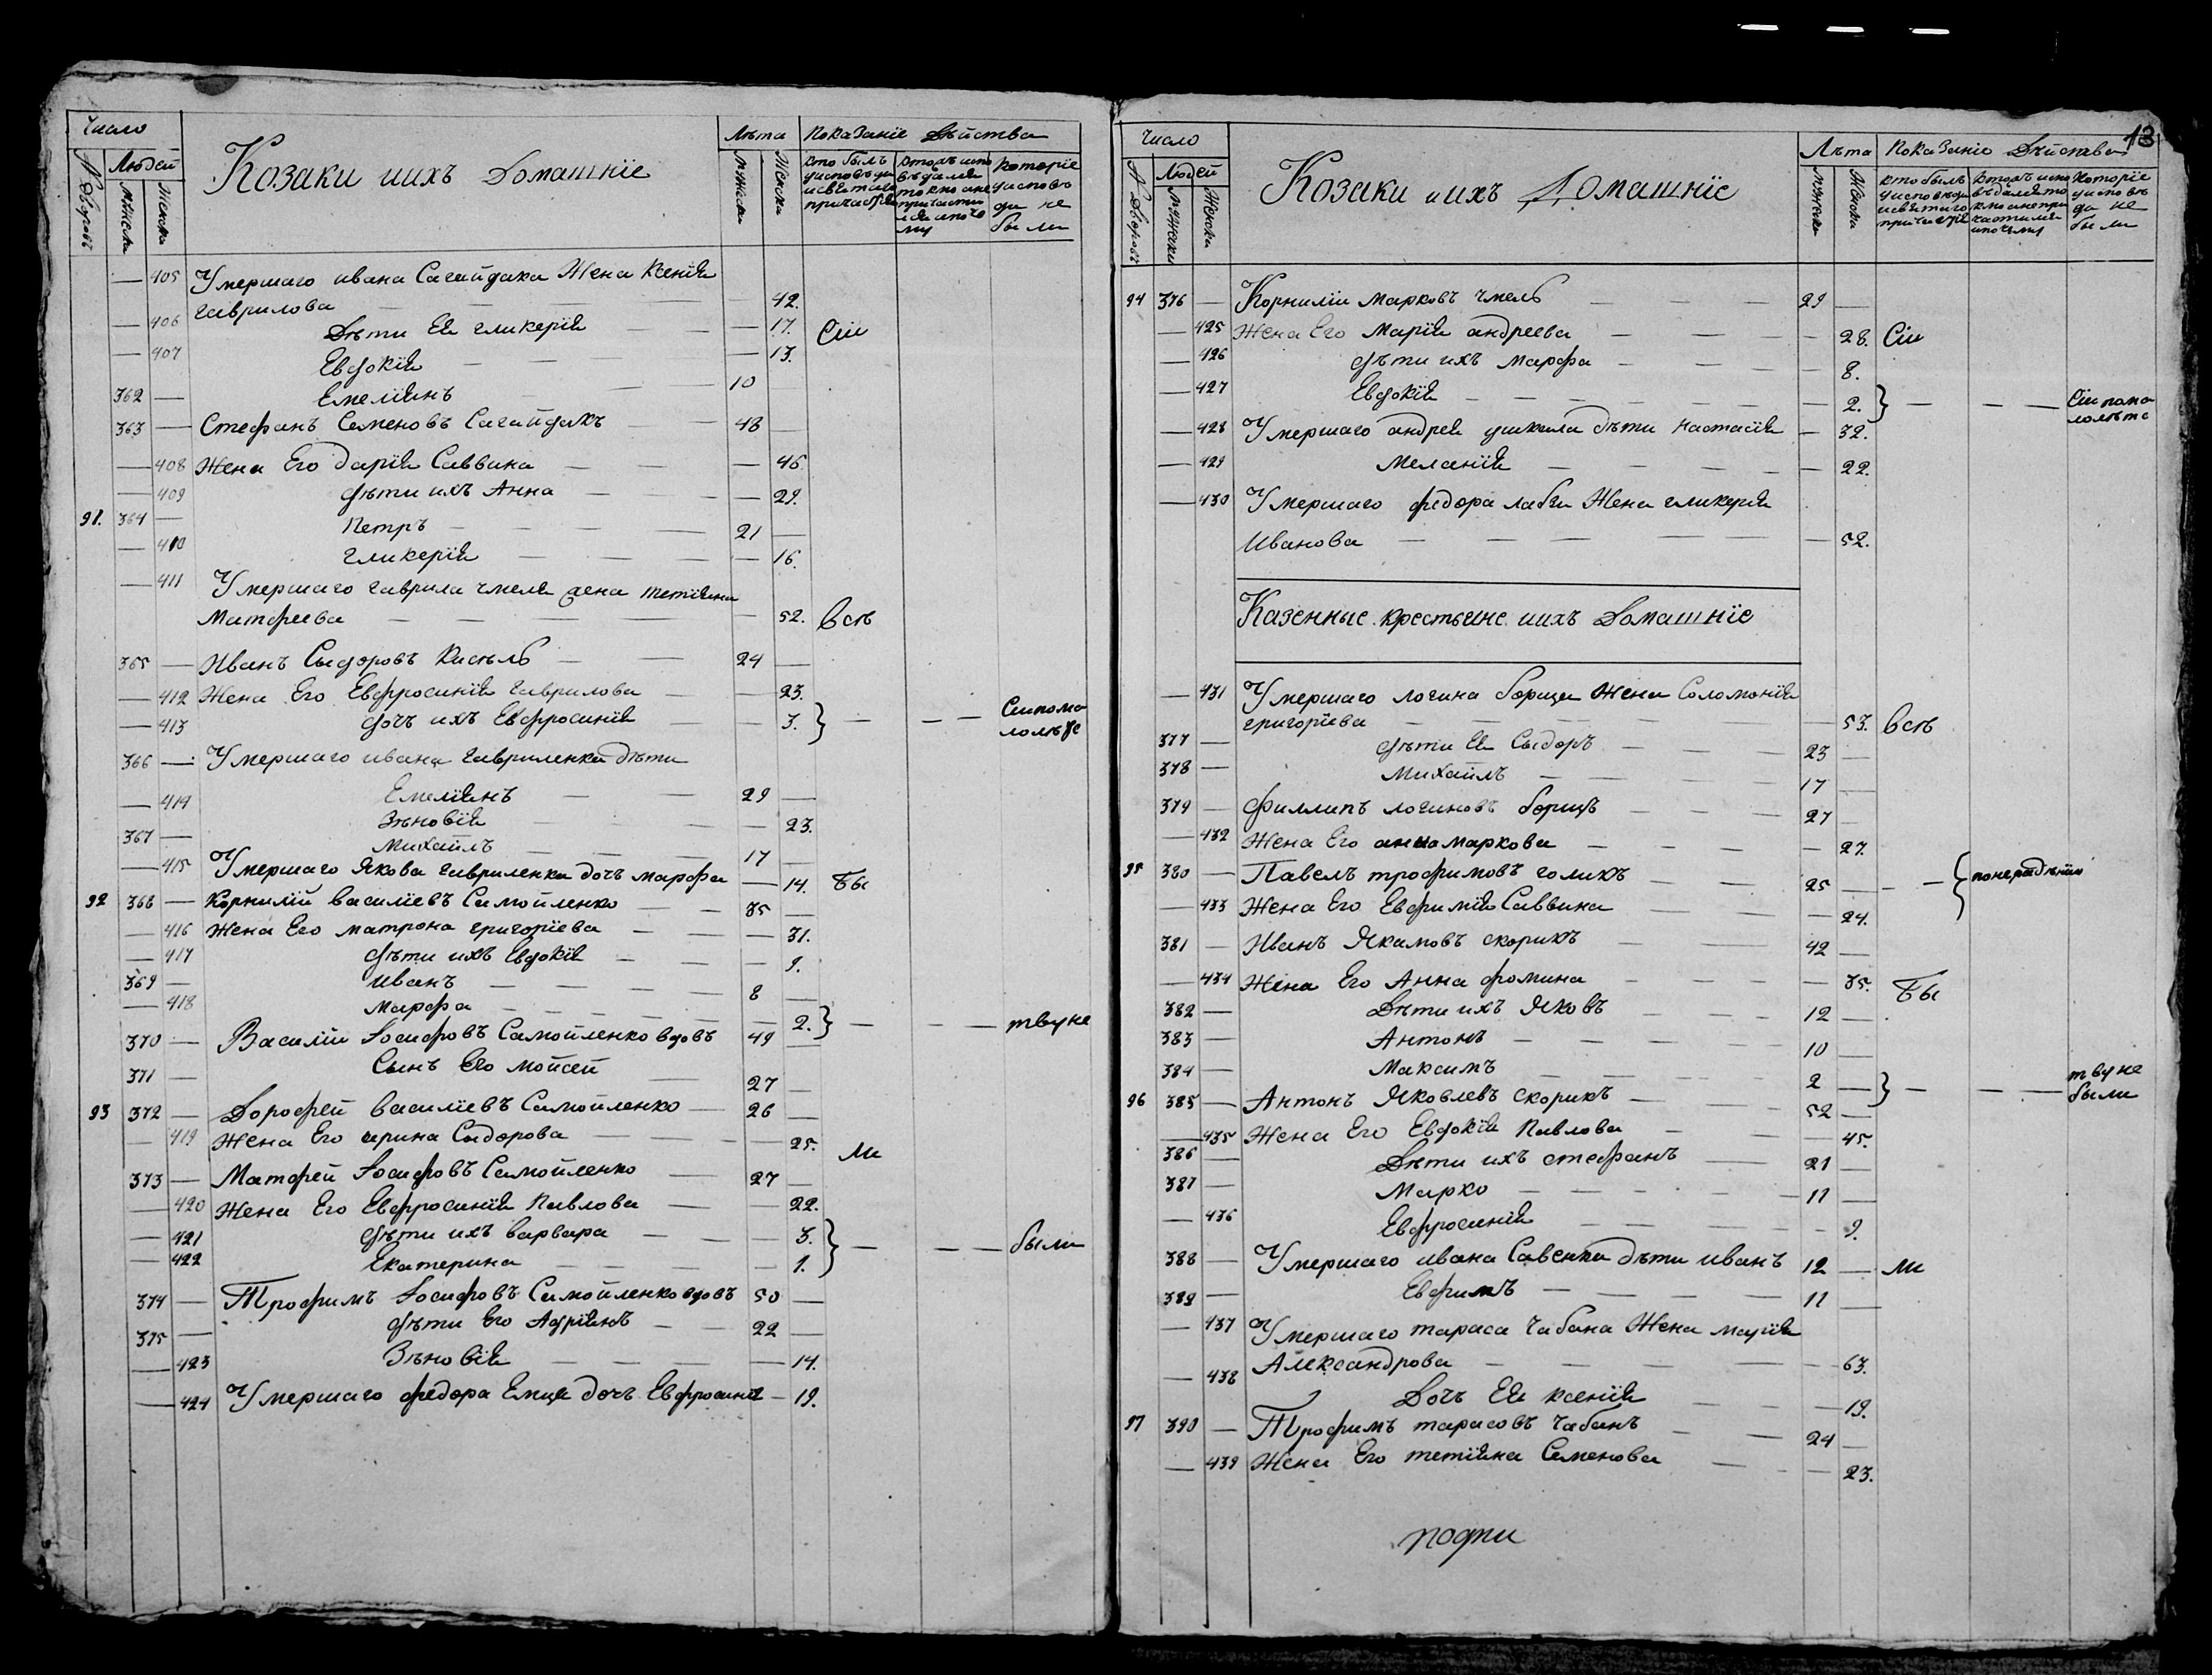 Число
Людей
Лѣта
Показаніе Дѣйства
№ Дворовъ
Мужеска
Женска
Козаки иихъ Домашніе
Мужеска
Женска
кто былъ уисповѣди исвѣтаго причастія
которіе уисповѣди не были
— 405 Умершаго ивана Сагайдака Жена Ксенія
гаврилова — — — 42.
— 406 Дѣти Ея гликерія — — — 17. Сіи
— 407 Евдокія — — — 13.
362 — Емеліянъ — 10
363 — Стефанъ Семеновъ Сагайдакъ — 48 —
— 408 Жена Его дарія Саввина — — — 46
— 409 дѣти ихъ Анна — — — 29.
91. 364 — Петръ — — — 21 —
— 410 гликерія — — — 16.
— 411 Умершаго гаврила чмеля жена тетіяна
Матфеева — — — — 52. всѣ
365 — Иванъ Сыдоровъ Кисѣль — — 24 —
— 412 Жена Его Евфросинія гаврилова — — 23.
— 413 дочъ ихъ Евфросинія — — 3. } — — — Сіипома
лолѣтс
366 — Умершаго ивана гавриленка дѣти
Емеліянъ — — 29 —
— 414 Зѣновія — — — 23.
367 — Михайлъ — — 17 —
— 415 Умершаго Якова гавриленка дочъ марфа — 14. бы
92 368 — Корнилій василіевъ Самойленко — — 35 —
— 416 Жена Его матрона григоріева — — — 31.
— 417 дѣти ихъ Евдокія — — — 9.
369 — иванъ — — — 8 —
— 418 марфа — — — 2. } — — — твуне
370 — Василій Іосифовъ Самойленко вдовъ 49 —
371 — Сынъ Его мойсей — 27 —
93 372 — Дорофей василіевъ Самойленко — 26 —
— 419 Жена Его ирина Сидорова — — — 25. ли
373 — Матфей Іосифовъ Самойленко — 27 —
— 420 Жена Его Евфросинія Павлова — — 22.
— 421 дѣти ихъ варвара — — — 3. } — — — были
— 422 Екатерина — — 1.
374 — Трофимъ Іосифовъ Самойленко вдовъ 50 —
375 — дѣти Его Адріянъ — — 22 —
— 423 Зѣновія — — — — 14.
— 424 Умершаго федора Емца дочъ Евфросинія — 19.
13
Число
Людей
Лѣта
Показаніе Дѣйства
№ Дворовъ
Мужеска
Женска
Козаки иихъ Домашніе
Мужеска
Женска
кто былъ уисповѣди исвѣтаго причастія
которіе уисповѣди не были
94 376 — Корнилій Марковъ чмель — — — 29 —
— 425 Жена Его Марія андреева — — — 28. Сіи
— 426 дѣти ихъ Марфа — — — 8.
— 427 Евдокія — — — 2. } — — — Сіи пома
лолѣтс
— 428 Умершаго андрея ушкала дѣти Настасія — 32.
— 429 Меланія — — — — 22.
— 430 Умершаго федора лабзи Жена гликерія
Иванова — — — — — 52.
Казенные крестьяне иихъ Домашніе
— 431 Умершаго логина борща Жена Соломонія
григоріева — — — 53. всѣ
377 — дѣти Ея Сыдоръ — — — 23 —
378 — Михайлъ — — — 17 —
379 — Филлипъ логиновъ борщъ — — — 27 —
— 432 Жена Его анна маркова — — — 27.
95 380 — Павелъ трофимовъ голикъ — — 25 — — — { понерадѣнію
— 433 Жена Его Евфимія Саввина — — — 24.
381 — Иванъ Якимовъ скорикъ — — 42 —
— 434 Жена Его Анна фомина — — — 35. бы
382 — Дѣти ихъ Яковъ — — 12 —
383 — Антонъ — — — 10 —
384 — Максимъ — — — 2 — } — — — твуне
были
96 385 — Антонъ Яковлевъ скорикъ — — 52 —
— 435 Жена Его Евдокія Павлова — — — 45.
386 — Дѣти ихъ стефанъ — 21 —
387 — Марко — — — 11 —
— 436 Евфросинія — — — 9.
388 — Умершаго ивана Савенка дѣти иванъ 12 — ли
389 — Евфимъ — — — 11 —
— 437 Умершаго тараса чабана Жена марія
Александрова — — — — 63.
— 438 Дочъ Ея ксенія — — 19.
97 390 — Трофимъ тарасовъ чабанъ — — 24 —
— 439 Жена Его тетіяна Семенова — — — 23.
подпи